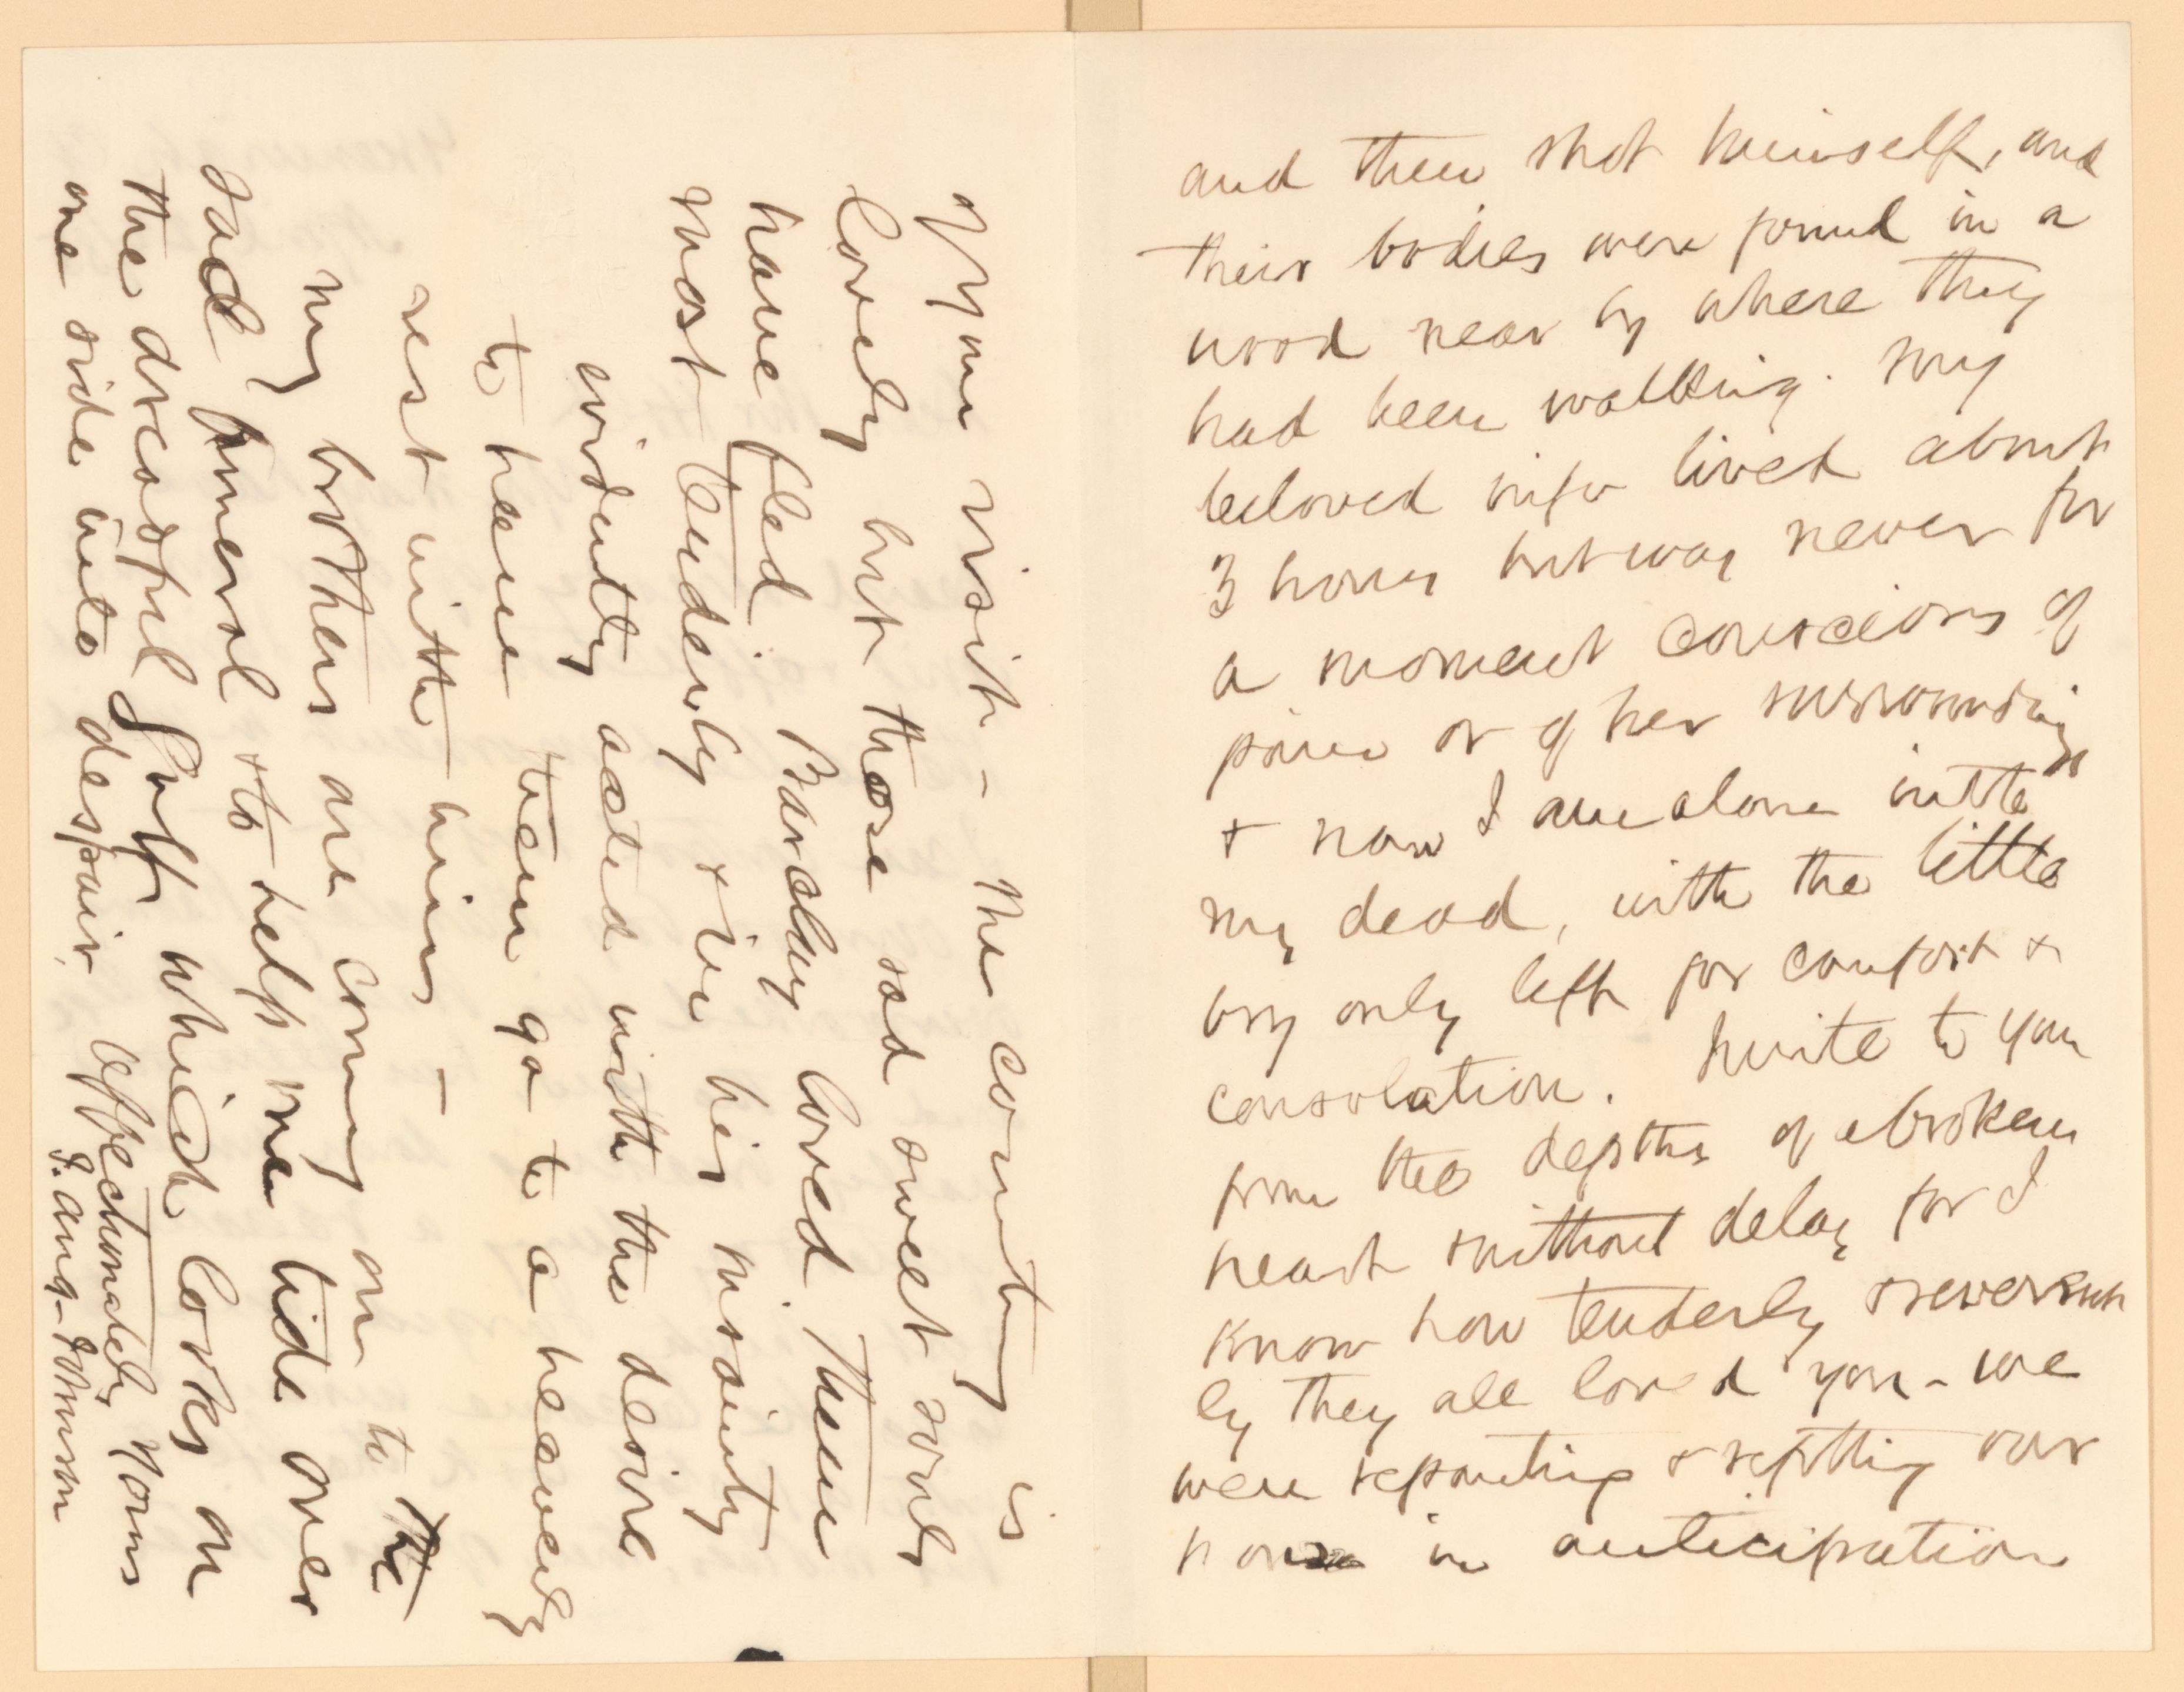 and then shot himself, and
their bodies were found in a
wood near by where they
had been walking. My
beloved wife lived about
3 hours but was never for
a moment conscious of
pain or of her surroundings
+ now I am alone with
my dead, with the little
boy only left for comfort +
consolation. I write to you
from the depths of a broken
heart without delay for I
know how tenderly + reverent
ly they all loved you - we
were repainting + refitting our
house in anticipation
of your visit - The country is
lovely but those sad sweet souls
have fled. Barclay loved them
most tenderly + in his insanity
evidently acted with the desire
to have them go to a heavenly
rest with him -
My brothers are coming on to the
sad funeral + to help me tide over
the dreadful Gulf which looks on
one side into despair. Affectionately Yours
J. Aug. Johnson